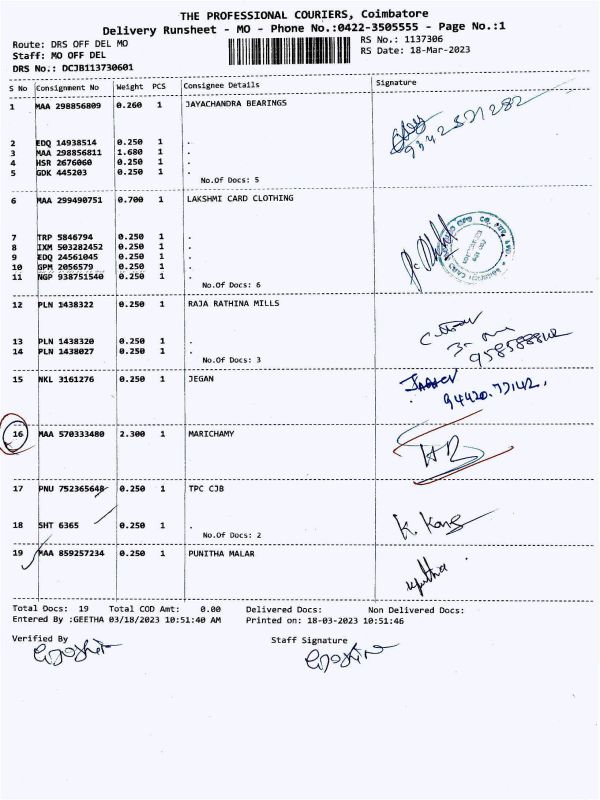 THE PROFESSIONAL COURIERS, Coimbatore
Delivery Runsheet - MO - Phone No.:0422-3505555 - Page No.:1
Route: DRS OFF DEL MO RS No.: 1137306
Staff: MO OFF DEL RS Date: 18-Mar-2023
DRS No.: DCJB113730601
S No Consignment No Weight PCS Consignee Details Signature
1 MAA 298856809 0.260 1 JAYACHANDRA BEARINGS
2 EDQ 14938514 0.250 1 .
3 MAA 298856811 1.680 1 .
4 HSR 2676060 0.250 1 .
5 GDK 445203 0.250 1 .
No.Of Docs: 5
6 MAA 299490751 0.700 1 LAKSHMI CARD CLOTHING
7 TRP 5846794 0.250 1 .
8 IXM 503282452 0.250 1 .
9 EDQ 24561045 0.250 1 .
10 GPM 2056579 0.250 1 .
11 NGP 938751540 0.250 1 .
No.Of Docs: 6
12 PLN 1438322 0.250 1 RAJA RATHINA MILLS
13 PLN 1438320 0.250 1 .
14 PLN 1438027 0.250 1 .
No.Of Docs: 3
15 NKL 3161276 0.250 1 JEGAN
16 MAA 570333480 2.300 1 MARICHAMY
17 PNU 752365648 0.250 1 TPC CJB
18 SHT 6365 0.250 1 .
No.Of Docs: 2
K. Kang
19 MAA 859257234 0.250 1 PUNITHA MALAR
Total Docs: 19 Total COD Amt: 0.00 Delivered Docs: Non Delivered Docs:
Entered By :GEETHA 03/18/2023 10:51:40 AM Printed on: 18-03-2023 10:51:46
Verified By Staff Signature